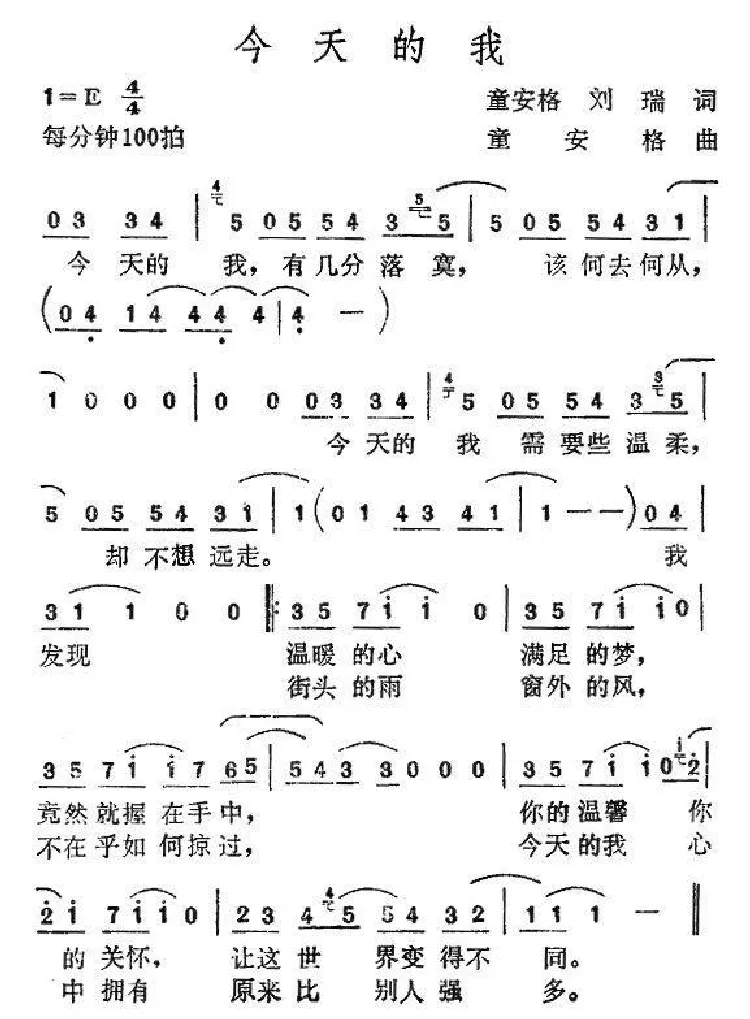 今天的我
1=E 4/4 童安格 刘瑞 词
每分钟100拍 童安格 曲
03 34 | 5 05 54 3 5 | 5 05 54 31 |
今 天的 我，有几分 落 寞， 该 何去何从，
(04 14 44 4 | 4 —)
1 0 0 0 | 0 0 03 34 | 5 05 54 3 5 |
今 天的 我 需 要些 温 柔，
5 05 54 31 | 1 (01 43 41 | 1 — —) 04 |
却 不想 远走。 我
31 1 0 0 |: 35 71 1 0 | 35 71 10 |
发现 温暖 的心 满足 的梦，
街头 的雨 窗外 的风，
35 71 17 65 | 54 3 3 0 0 0 | 35 71 10 2 |
竟然 就握 在手 中， 你的 温馨 你
不在 乎如 何掠 过， 今天 的我 心
21 71 10 | 23 4 5 54 32 | 11 1 — ‖
的 关怀， 让这 世 界变 得不 同。
中 拥有 原来 比 别人 强 多。